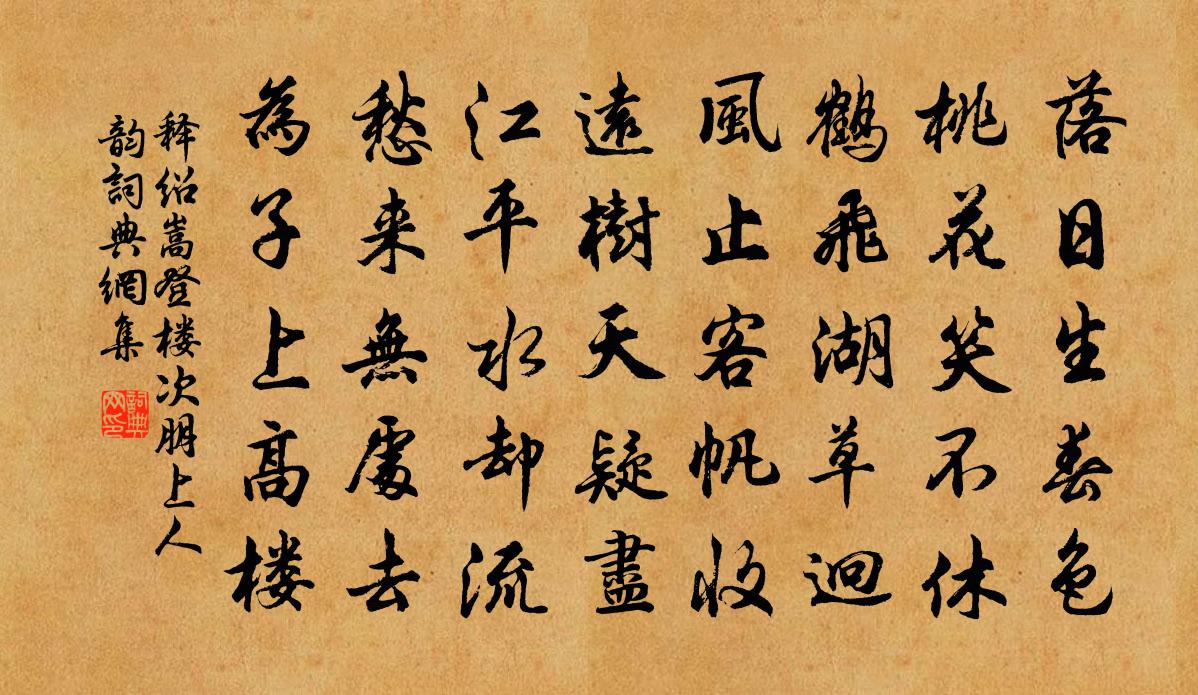 落日生春色
桃花笑不休
鶴飛湖草迥
風止客帆收
遠樹天疑盡
江平水却流
愁来無處去
為子上高楼
释绍嵩登楼次朋上人
韵詞典網集
詞典网印